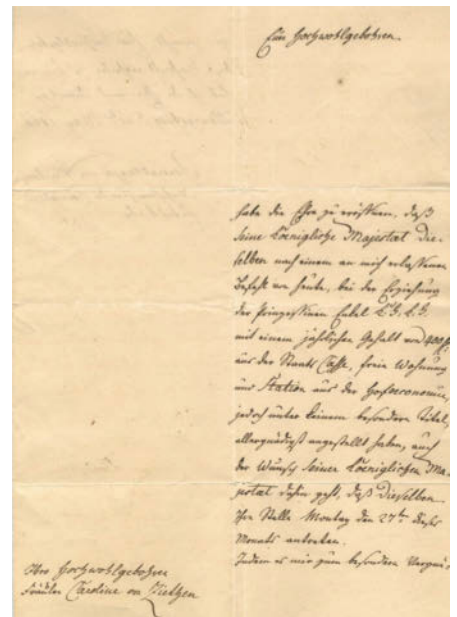 Euer Hochwohlgebohren.
habe die Ehre zu eröffnen, daß
Seine Koenigliche Majestät Die-
selben nach einem an mich erlassenen
Befehl von heute, bei der Erziehung
der Prinzessinnen
mit einem jährlichen Gehalt von 400 f
aus der Staats Casse, freie Wohnung
und Station aus der Hofoeconomie,
jedoch unter keinem besondern Titel,
allergnädigst angestellt haben, auch
der Wunsch Seiner Koeniglichen Ma-
jestät dahin geht, daß Dieselben
Ihre Stelle Montag den 27ten dieses
Monats antreten.
Indem es mir zum besondern Vergnü-
Ihro Hochwohlgebohren
Fräulen Caroline von